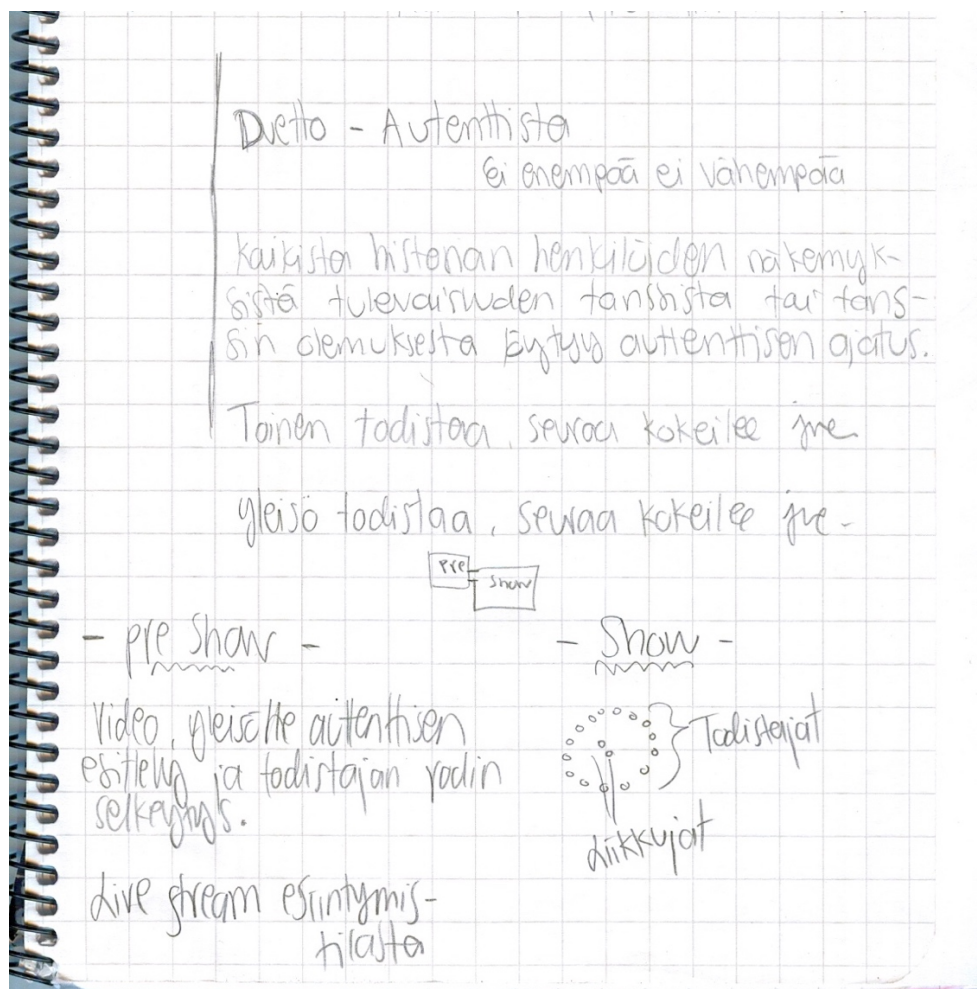 Duetto - Autenttista
Ei enempää ei vähempää
Kaikista historian henkilöiden näkemyk-
sistä tulevaisuuden tanssista tai tans-
sin olemuksesta löytyy auttenttisen ajatus.
Toinen todistaa, seuraa kokeilee jne
yleisö todistaa, seuraa kokeilee jne-
Pre
Show
- pre Show -
Video, yleisölle autenttisen
esittely ja todistajan roolin
selkeytys.
Live stream esiintymis-
tilasta
- Show -
Todistajat
Liikkujat